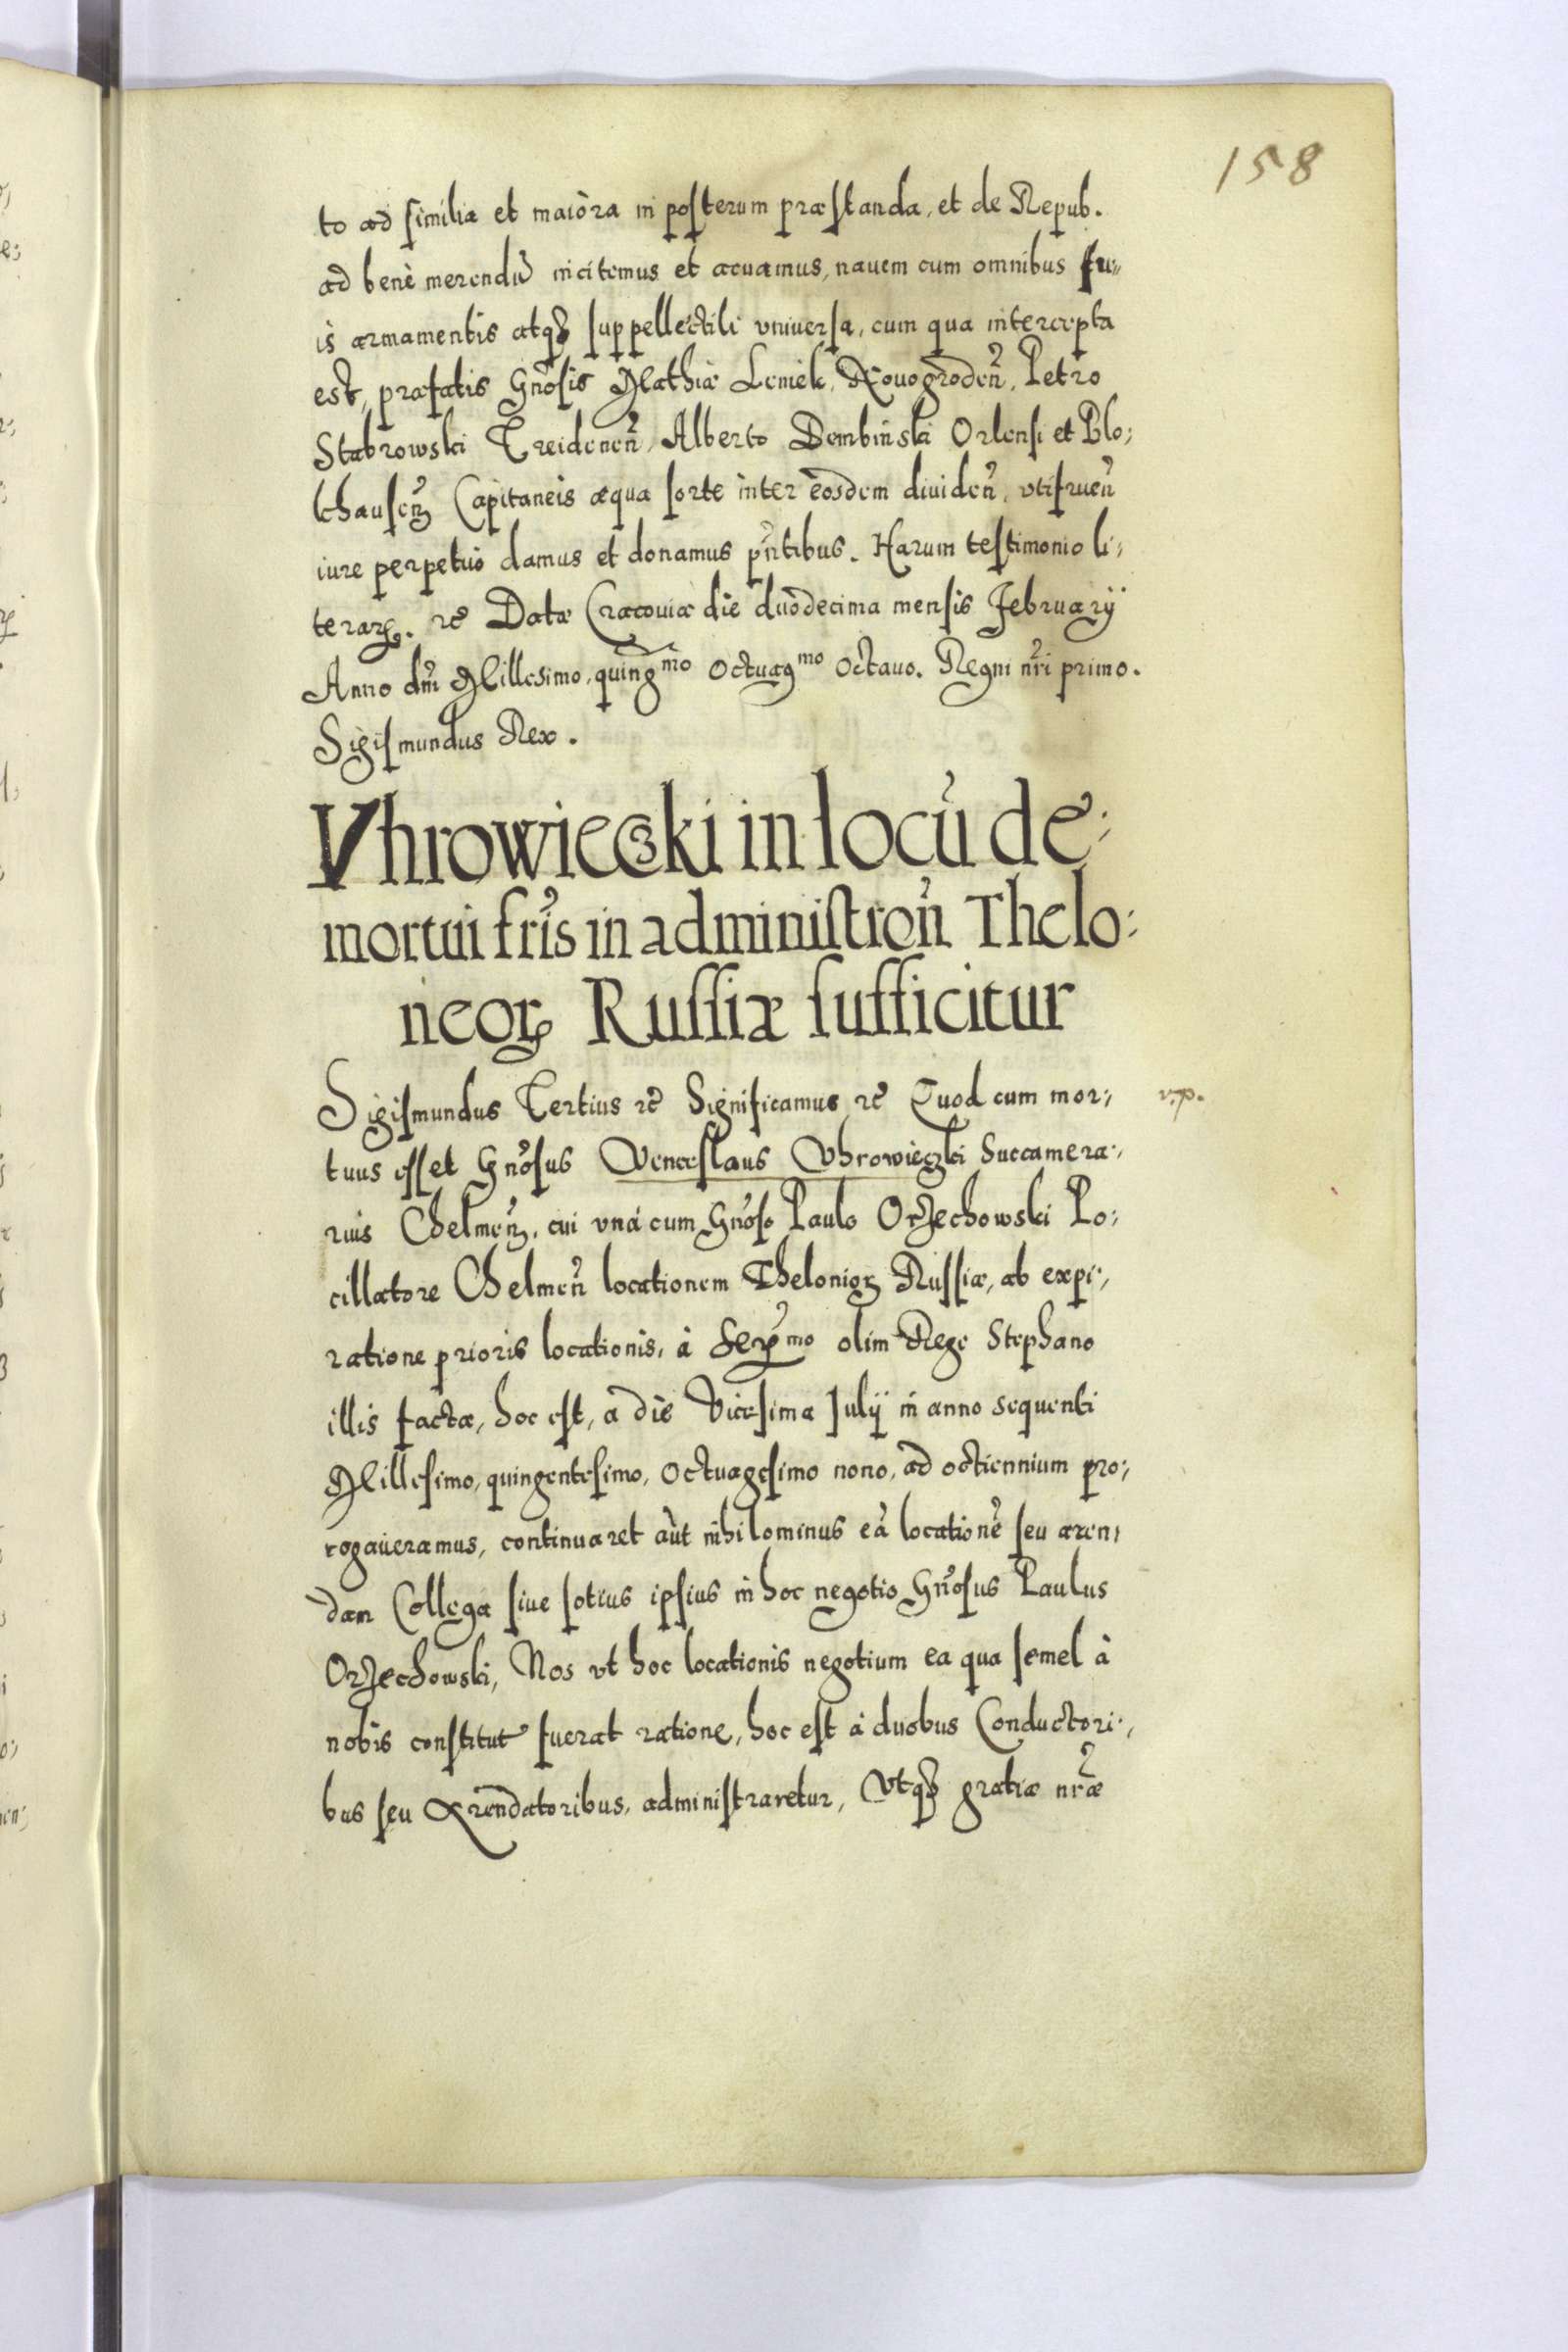 158
to ad similia et maiora in posterum præstanda, et de Repub.
ad benè merendũ incitemus et acuamus, nauem cum omnibus su-
is armamentis atqȝ suppellectili vniuersa, cum qua intercepta
est, præfatis Gnosis Mathiæ Leniek, Nouogroden̄, Petro
Stabrowski Treidenen̄, Alberto Dembinski Orlensi et Blo-
khausenȝ Capitaneis æqua sorte inter eosdem diuiden̄, vtifruen̄
iure perpetuò damus et donamus pn̄tibus. Harum testimonio li-
terarꝝ. rc̄ Datæ Cracouiæ die duodecima mensis February
Anno dn̄i Millesimo, quing^mo Octuag^mo Octauo. Regni nr̄i primo.
Sigismundus Rex.
Vhrowieczki in locũ de-
mortui fr̄is in administron̄ Thelo-
neorꝝ Russiæ sufficitur
Sigismundus Tertius rc̄ Significamus rc̄ Quod cum mor- v.p.
tuus esset Gnosus Venceslaus Vhrowieczki Succamera-
rius Chelmenȝ, cui vnà cum Gnoso Paulo Orzechowski Po-
cillatore Chelmen̄ locationem Theloniorꝝ Russiæ, ab expi-
ratione prioris locationis, à Ser^mo olim Rege Stephano
illis factæ, hoc est, a die Vicesima Julÿ in anno sequenti
Millesimo, quingentesimo, Octuagesimo nono, ad octiennium pro-
rogaueramus, continuaret aũt nihilominus eã locationẽ seu aren-
dam Collega siue sotius ipsius in hoc negotio Gnosus Paulus
Orzechowski, Nos vt hoc locationis negotium ea qua semel à
nobis constitutũ fuerat ratione, hoc est à duobus Conductori-
bus seu Arendatoribus, administraretur, Vtqȝ gratiæ nr̄æ